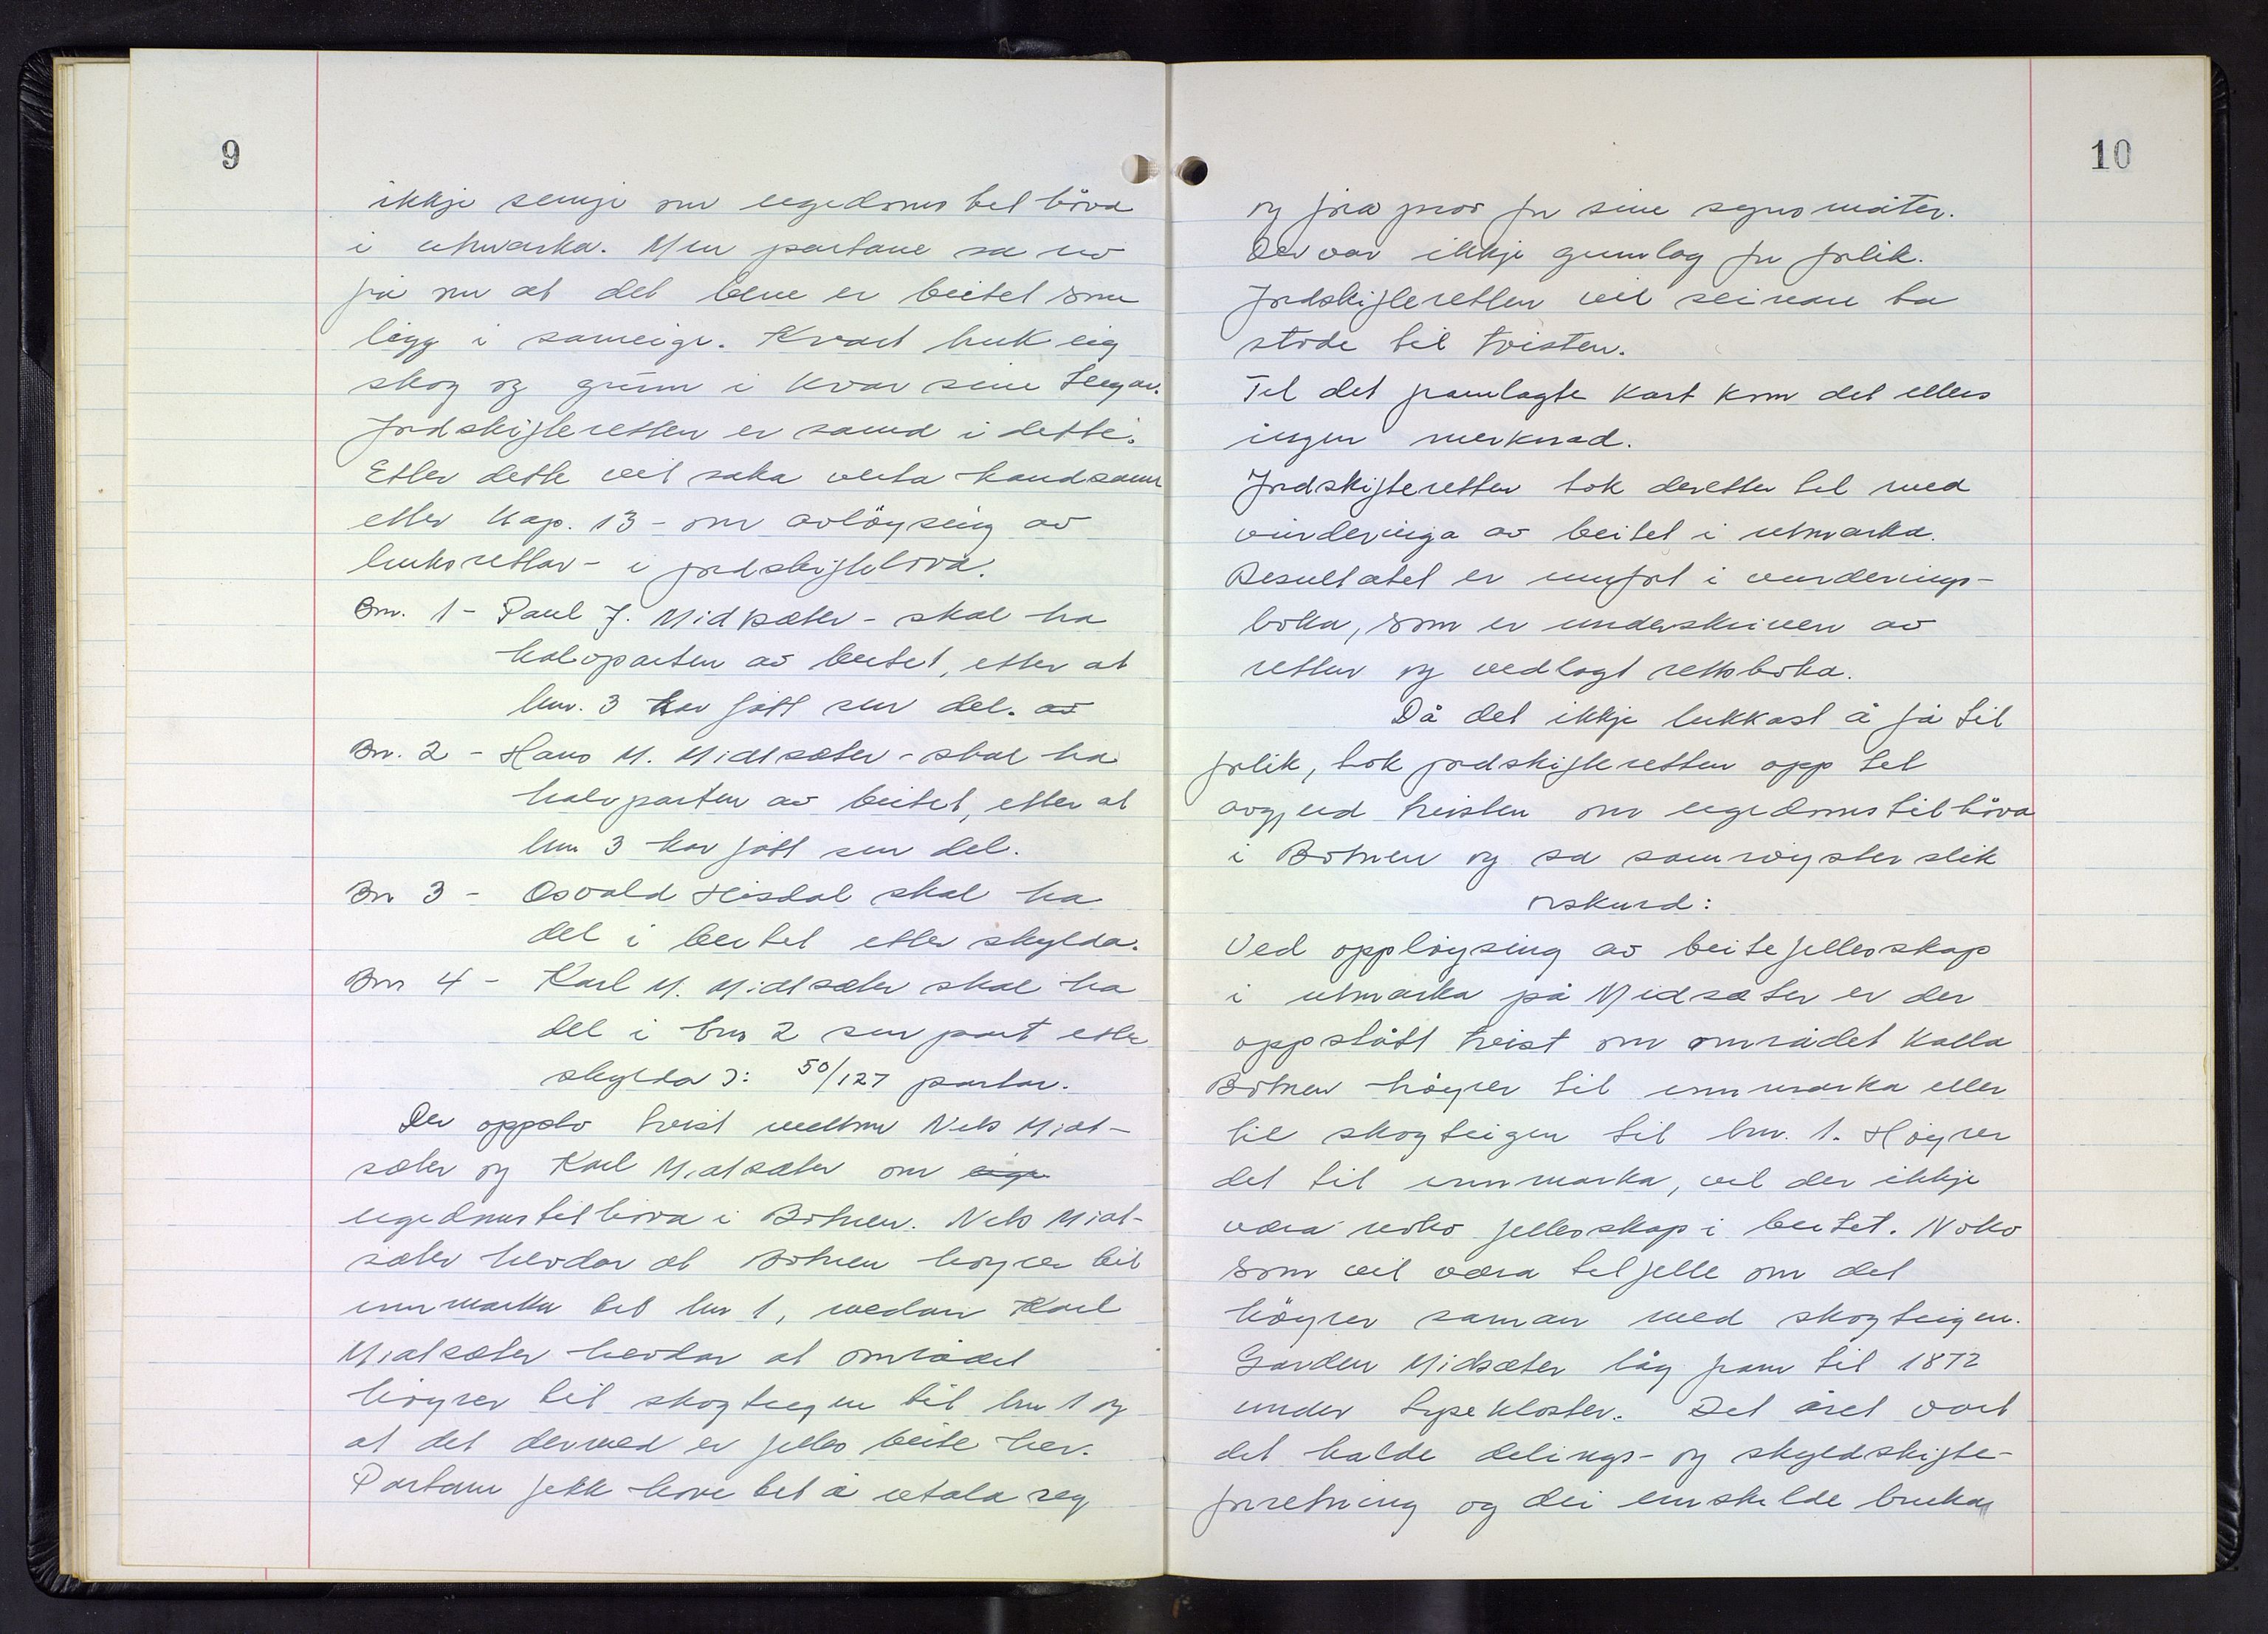 9
ikkje semje om eigedomstilhöva
i utmarka. Men partane sa no
frå om at det bare er beitet som
ligg i sameige. Kvart bruk eig
skog og grunn i kvar sine teigar.
Jordskifteretten er samd i dette.
Etter dette vil saka verta handsama
etter kap. 13 - om avlöysing av
bruksrettar - i jordskiftelova.
Bnr. 1 - Paul J. Midtsæter - skal ha
halvparten av beitet, etter at
bnr. 3 har fått sin del. av
Bnr. 2 - Hans M. Midtsæter - skal ha
halvparten av beitet, etter at
bnr 3 har fått sin del.
Bnr 3 - Osvald Hisdal skal ha
del i beitet etter skylda.
Bnr 4 - Karl M. Midtsæter skal ha
del i bnr 2 sin part etter
skylda ɔ: 50/127 partar.
Der oppsto tvist mellom Nils Midt-
sæter og Karl Midtsæter om eige
eigedomstilhöva i Botnen. Nils Midt-
sæter hevdar at Botnen höyrer til
innmarka til bnr 1, medan Karl
Midtsæter hevdar at området
höyrer til skogteigen til bnr 1 og
at det dermed er felles beite her.
Partane fekk höve til å uttala seg
10
og föra prov for sine synsmåter.
Der var ikkje grunnlag for forlik.
Jordskifteretten vil seinare ta
stode til tvisten.
Til det framlagte kart kom det ellers
ingen merknad.
Jordskifteretten tok deretter til med
vurderinga av beitet i utmarka.
Resultatet er innfört i vurderings-
boka, som er underskriven av
retten og vedlagt rettsboka.
Då det ikkje lukkast å få til
forlik, tok jordskifteretten opp til
avgjerd tvisten om eigedomstilhöva
i Botnen og sa samröystes slik
orskurd:
Ved opplöysing av beitefellesskap
i utmarka på Midsæter er der
oppstått tvist om området kalla
Botnen höyrer til innmarka eller
til skogteigen til bnr. 1. Höyrer
det til innmarka, vil der ikkje
væra noko fellesskap i beitet. Noko
som vil væra tilfelle om det
höyrer saman med skogteigen.
Garden Midtsæter låg fram til 1872
under Lysekloster. Det året vart
det halde delings- og skyldskifte-
forretning og dei einskilde bruka